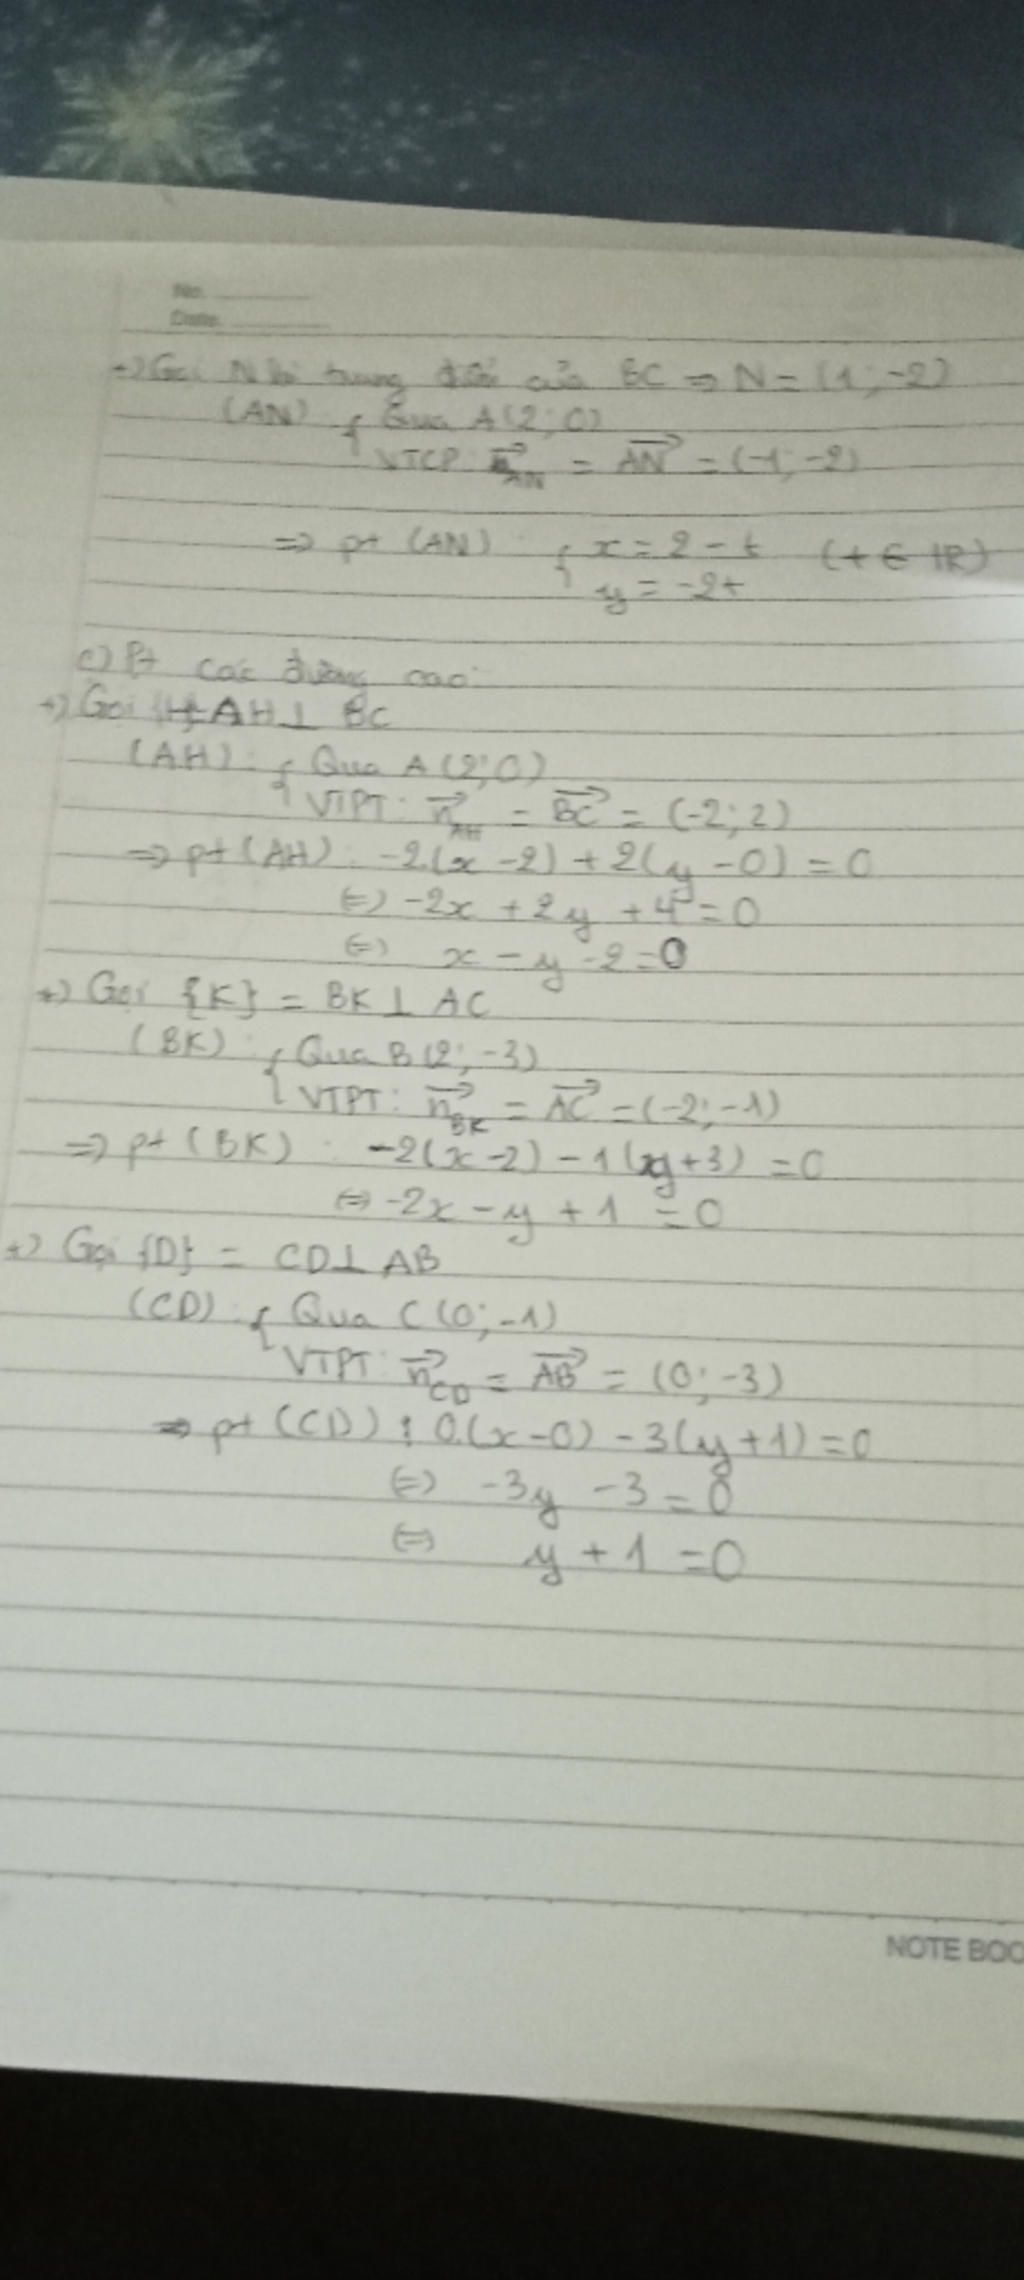 No.
Date
+) Gọi N là trung điểm của BC => N = (1; -2)
(AN) { Qua A(2; 0)
VTCP: n_AN = AN = (-1; -2)
=> pt (AN): { x = 2 - t (t ∈ IR)
y = -2t
c) Pt các đường cao:
+) Gọi {H} = AH ⊥ BC
(AH): { Qua A(2; 0)
VTPT: n_AH = BC = (-2; 2)
=> pt (AH): -2(x - 2) + 2(y - 0) = 0
(=) -2x + 2y + 4 = 0
(=) x - y - 2 = 0
+) Gọi {K} = BK ⊥ AC
(BK): { Qua B(2; -3)
VTPT: n_BK = AC = (-2; -1)
=> pt (BK): -2(x - 2) - 1(y + 3) = 0
(=) -2x - y + 1 = 0
+) Gọi {D} = CD ⊥ AB
(CD): { Qua C(0; -1)
VTPT: n_CD = AB = (0; -3)
=> pt (CD): 0.(x - 0) - 3(y + 1) = 0
(=) -3y - 3 = 0
(=) y + 1 = 0
NOTE BOO